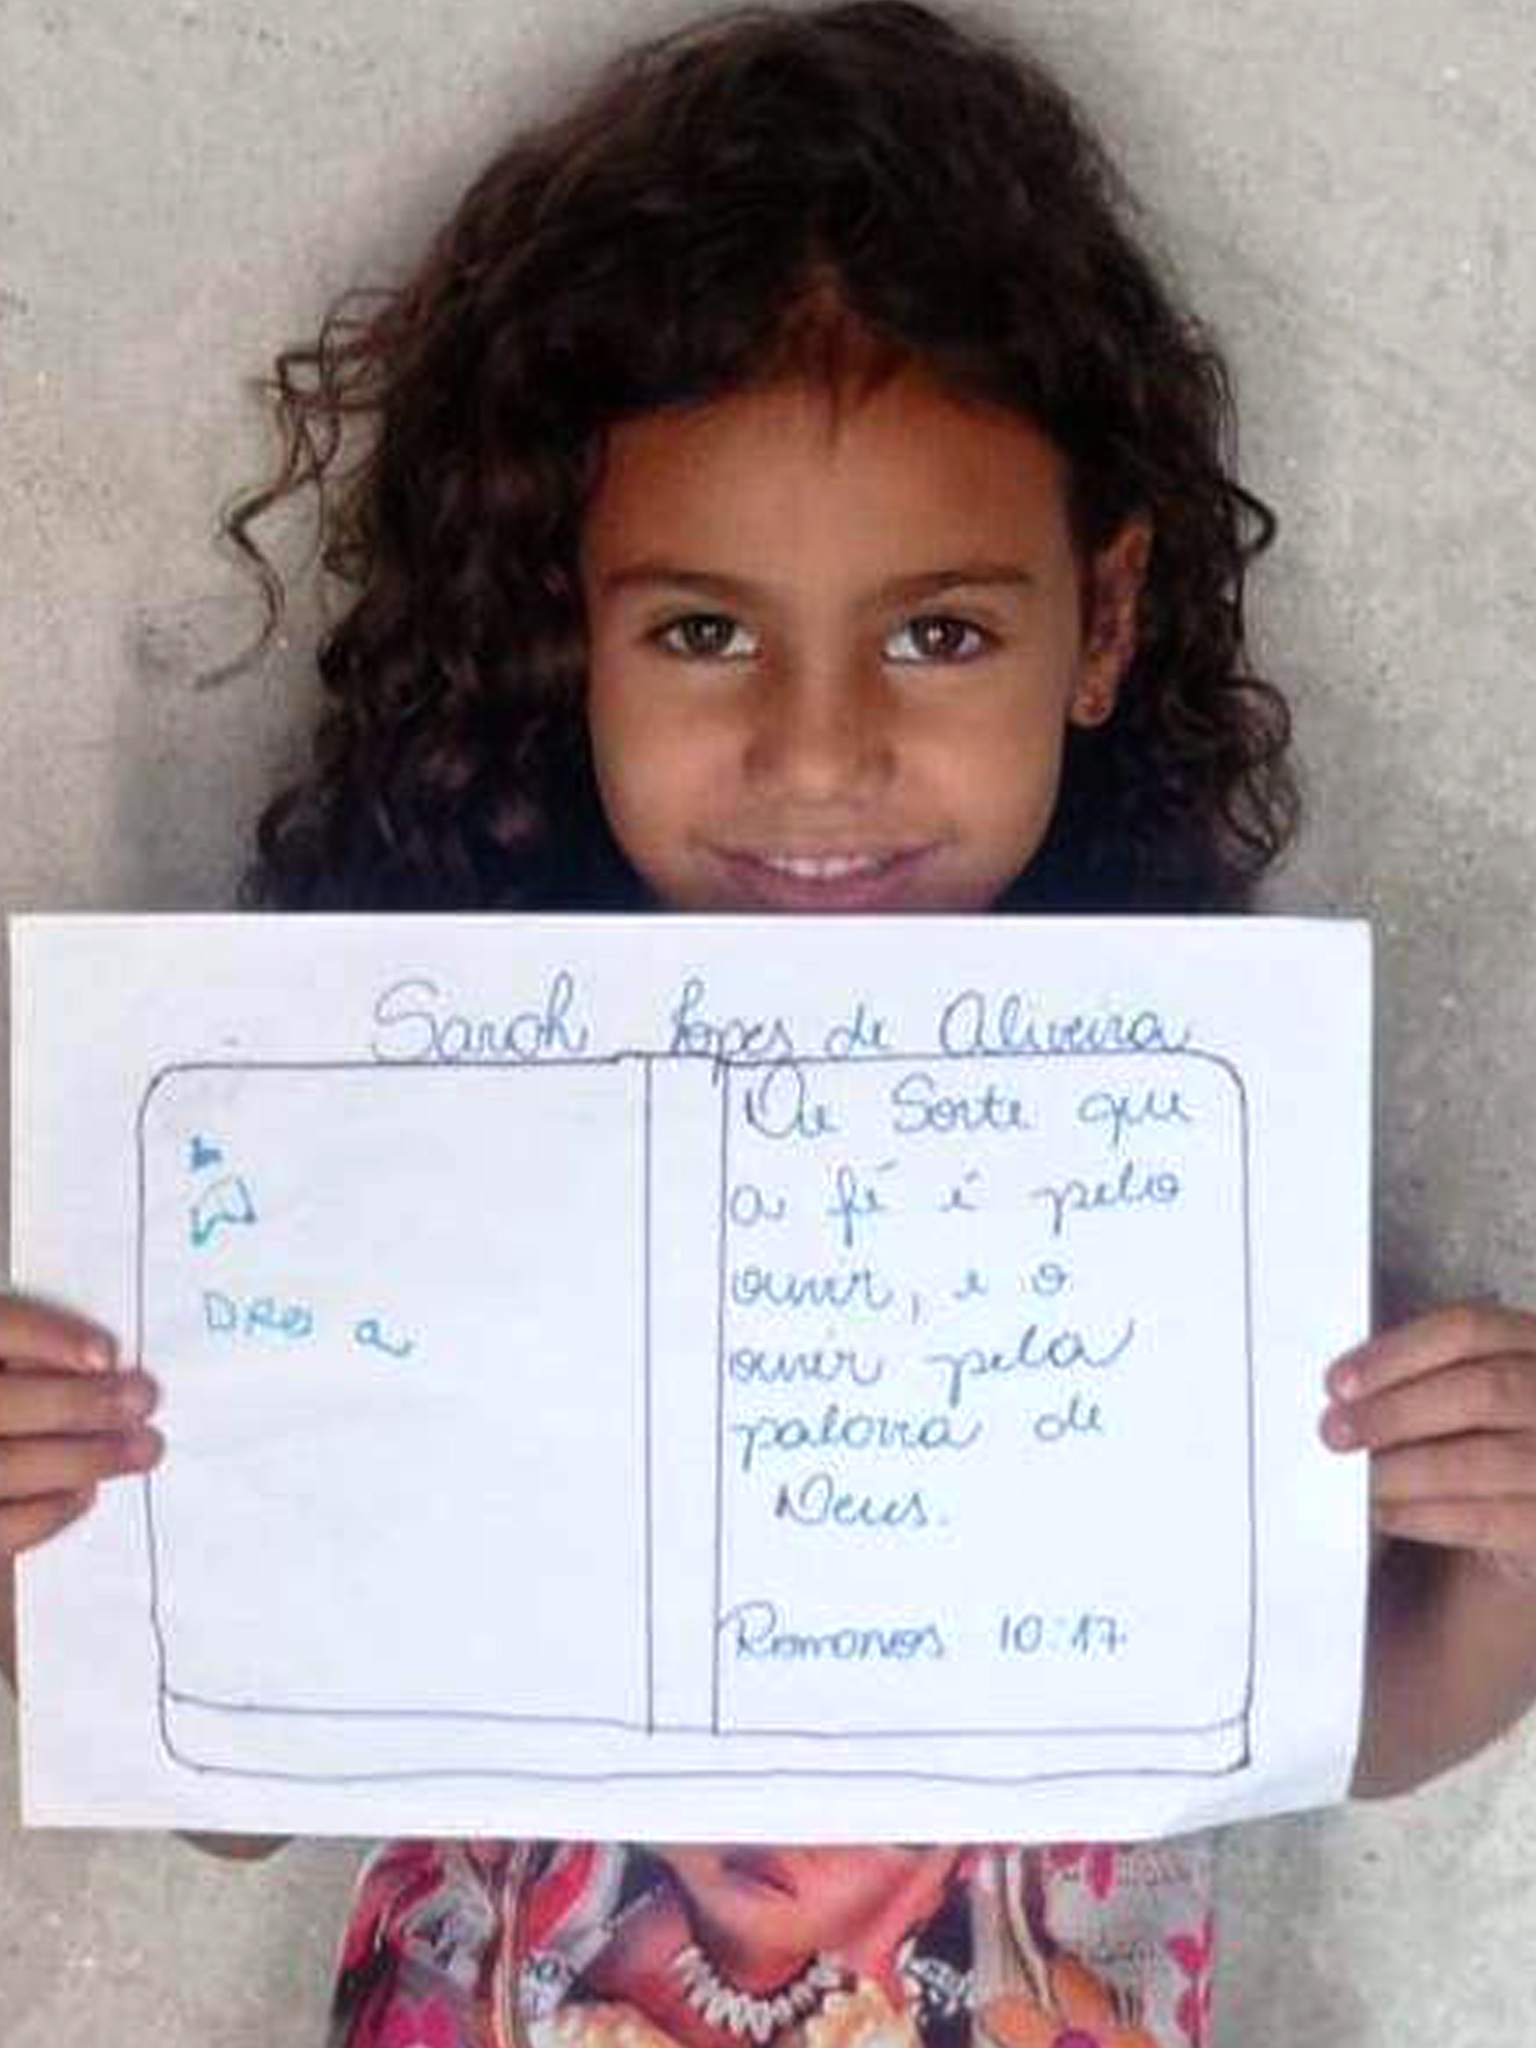 Sarah Lopes de Oliveira
De Sorte que
a fé é pelo
ouvir, e o
ouvir pela
palavra de
Deus.
Romanos 10:17